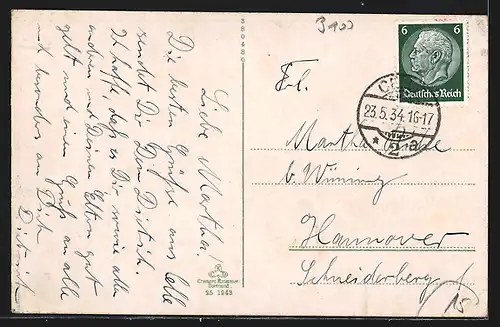 Liebe Martha!
Die besten Grüße aus Celle
sendet Dir Dein Dietrich.
Ich hoffe, daß es Dir sowie allen
anderen und Deinen Eltern gut
geht und einen Gruß an alle
und besonders an Dich
Dietrich
380486
Cramers Kunstanst.
Dortmund
25 1943
3400
6 6
Deutsches Reich
23.5.34.16-17
* 2 a
Frl.
Martha
b. Wüning
Hannover
Schneiderberg
15